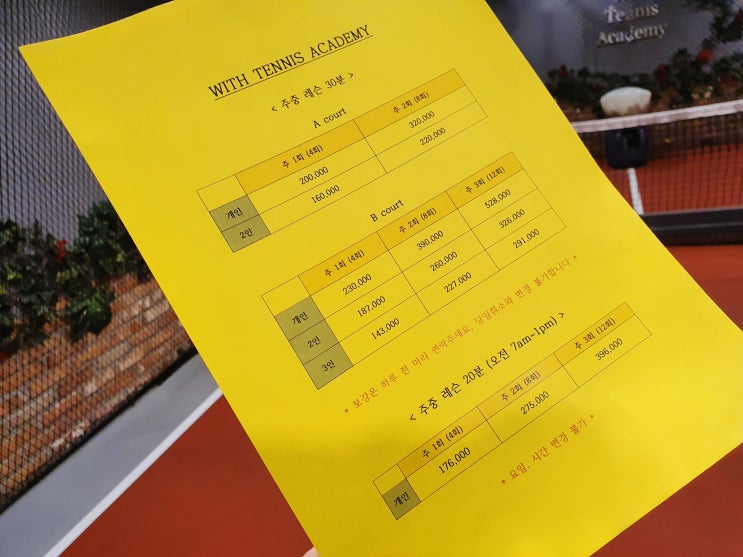 Tennis
Academy
WITH TENNIS ACADEMY
< 주중 레슨 30분 >
A court
주 1회 (4회) 주 2회 (8회)
개인 200,000 320,000
2인 160,000 220,000
B court
주 1회 (4회) 주 2회 (8회) 주 3회 (12회)
개인 230,000 390,000 528,000
2인 187,000 260,000 326,000
3인 143,000 227,000 291,000
* 보강은 하루 전 미리 연락주세요. 당일취소와 변경 불가합니다 *
< 주중 레슨 20분 (오전 7am~1pm) >
주 1회 (4회) 주 2회 (8회) 주 3회 (12회)
개인 176,000 275,000 396,000
* 요일, 시간 변경 불가 *